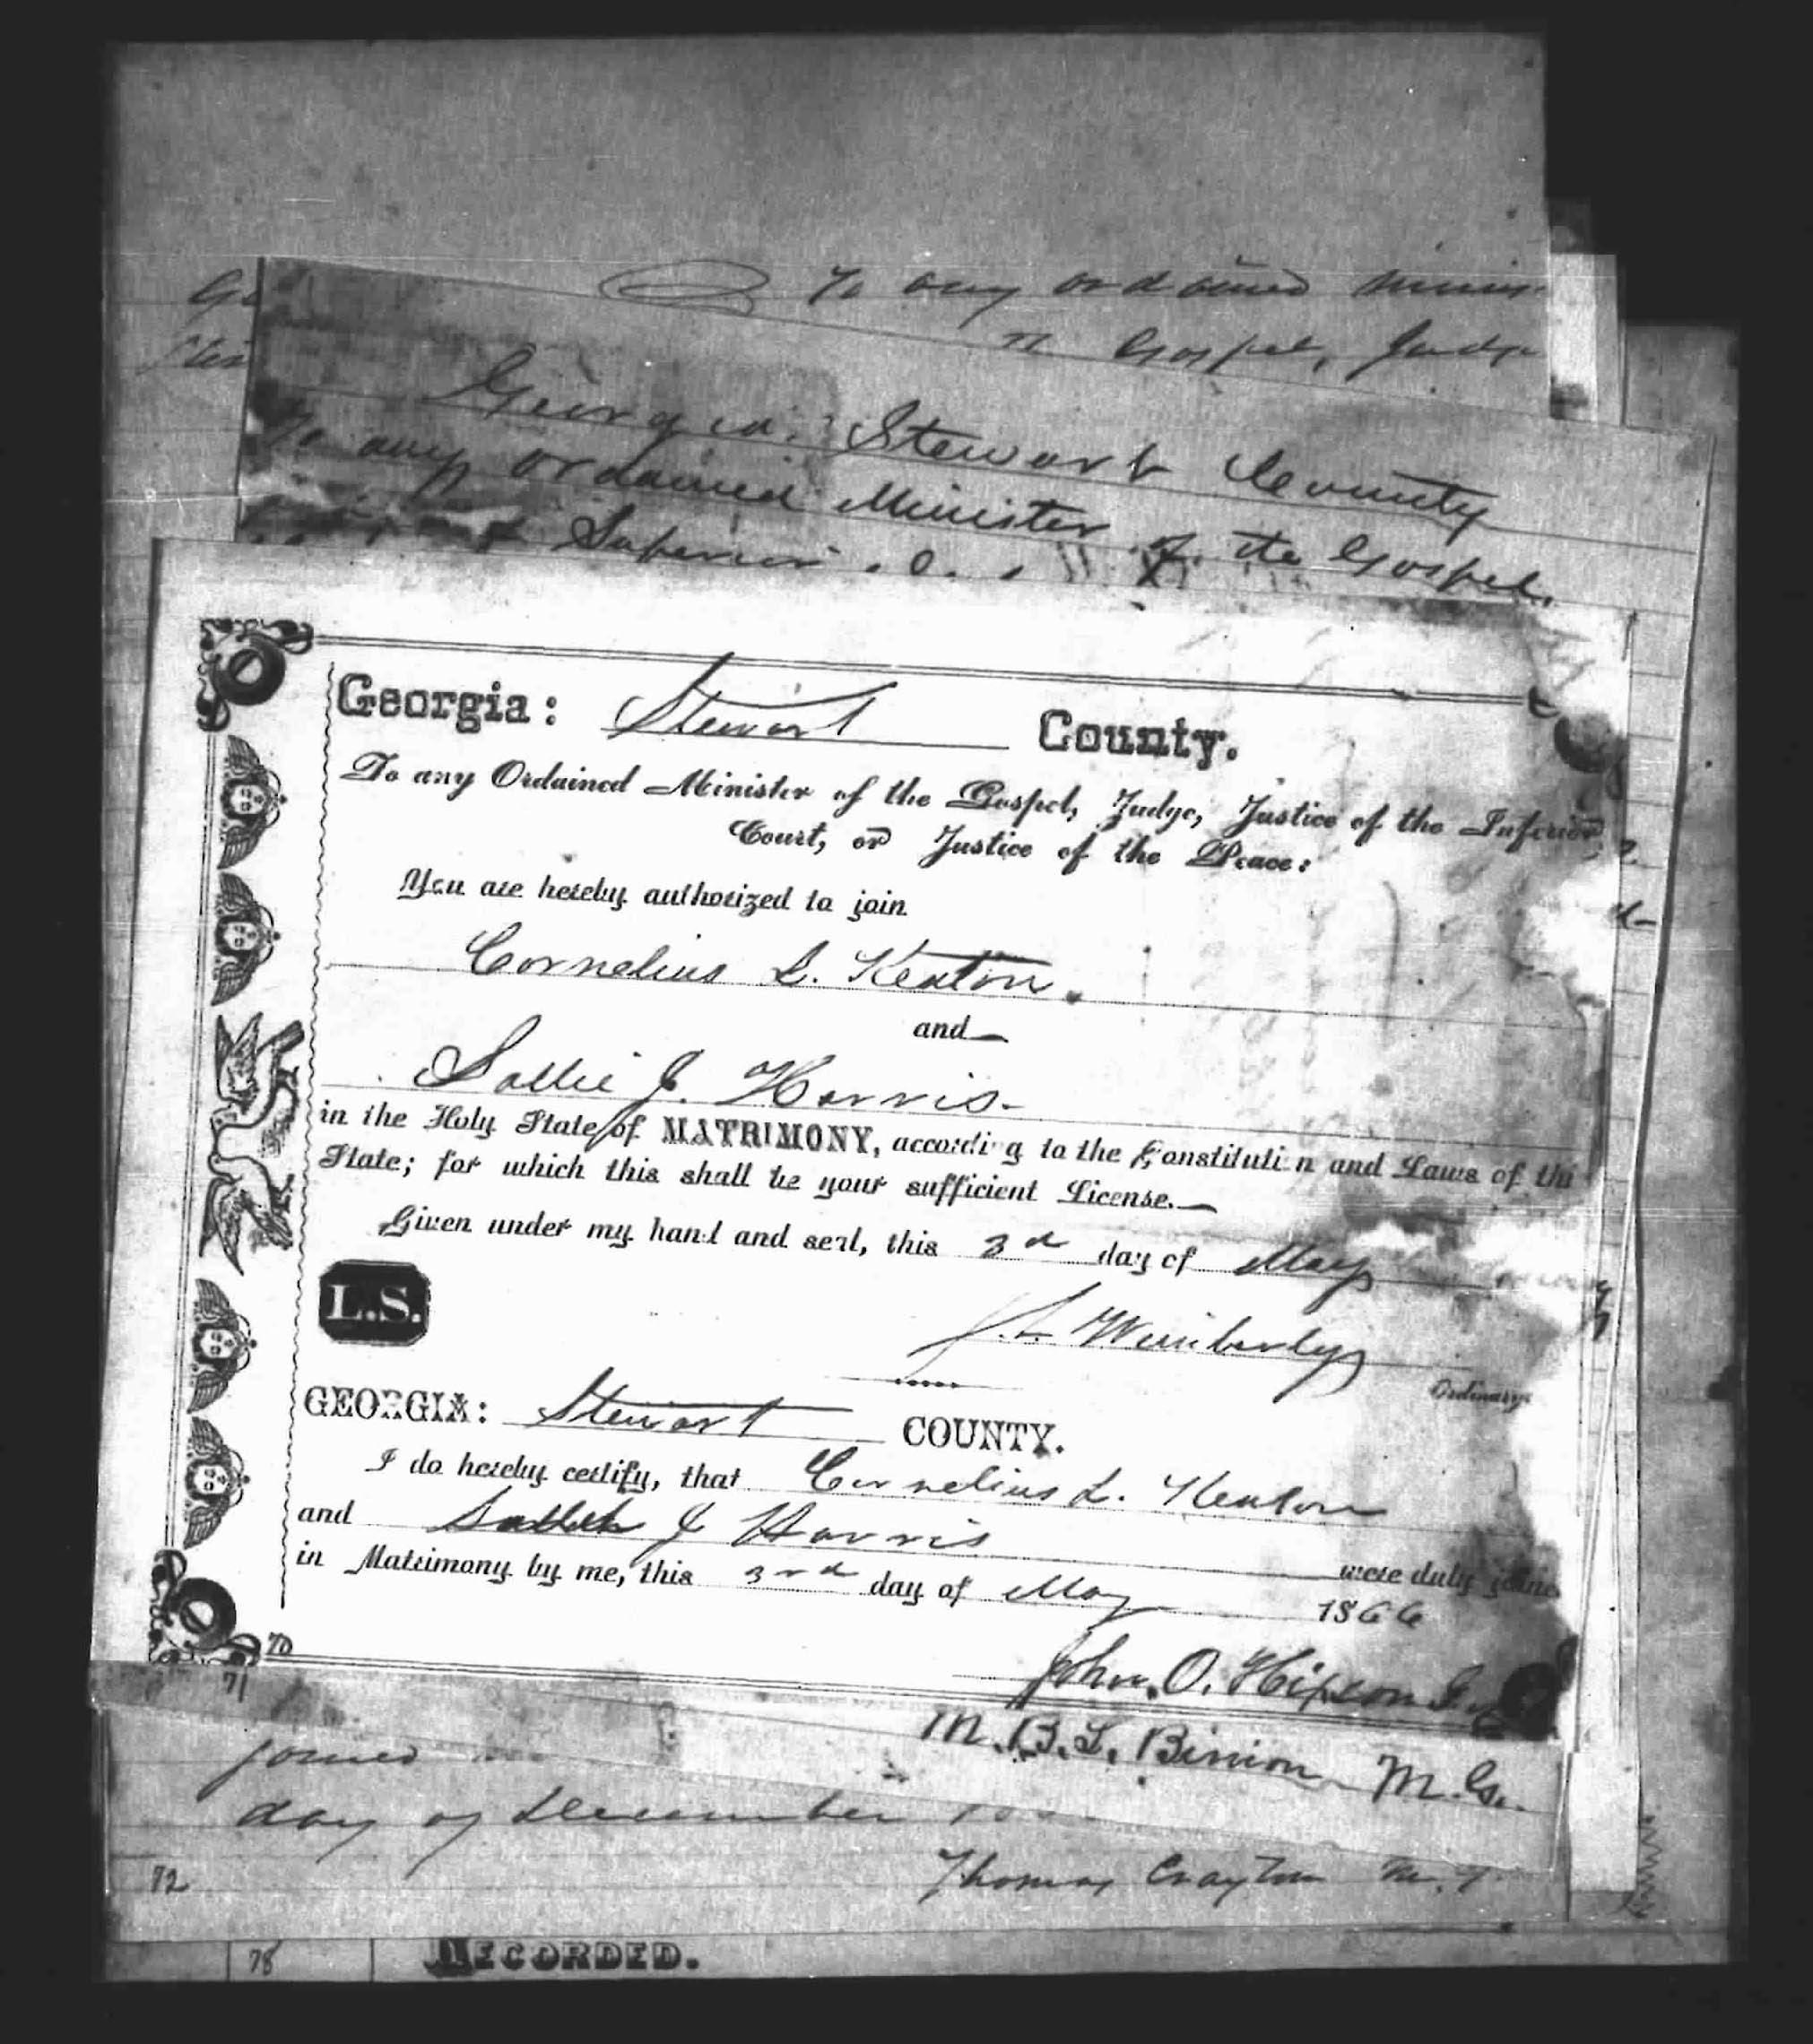 To any ordained minis
Gospel, Judge
Georgia. Stewart County
To any ordained Minister of the Gospel.
Superior
Georgia: Stewart County.
To any Ordained Minister of the Gospel, Judge, Justice of the Inferior
Court, or Justice of the Peace:
You are hereby authorized to join
Cornelius L. Keaton.
and
Sallie J. Harris.
in the Holy State of MATRIMONY, according to the Constitution and Laws of thi
State; for which this shall be your sufficient License.
Given under my hand and seal, this 3rd day of May
L.S.
J. L Wimberly
Ordinary.
GEORGIA: Stewart COUNTY.
I do hereby certify, that Cornelius L. Keaton
and Sallie J Harris were duly joine
in Matrimony by me, this 3rd day of May 1866
John. O. Hixson
70
71
M. B. L. Binion M. G.
joined
day of December
72
Thomas Crayton M. G.
78
RECORDED.